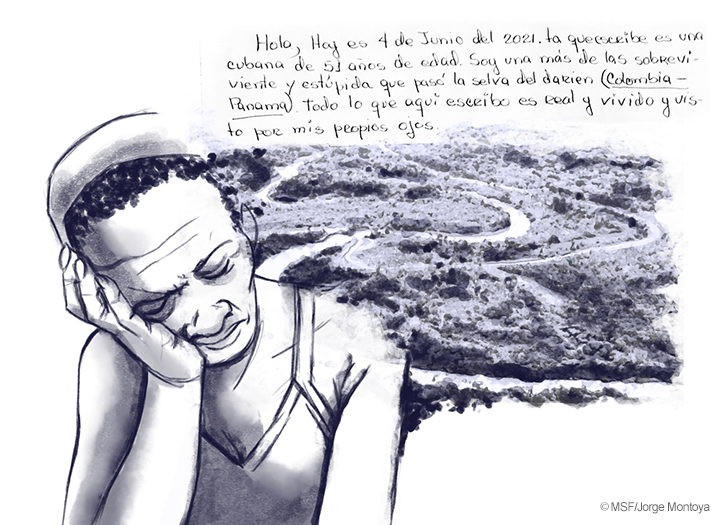 Hola, Hoy es 4 de Junio del 2021. la que escribe es una
cubana de 51 años de edad. Soy una más de las sobrevi-
viente y estúpida que pasó la selva del darien (Colombia -
Panamá). Todo lo que aquí escribo es real y vivido y vis-
to por mis propios ojos.
© MSF/Jorge Montoya